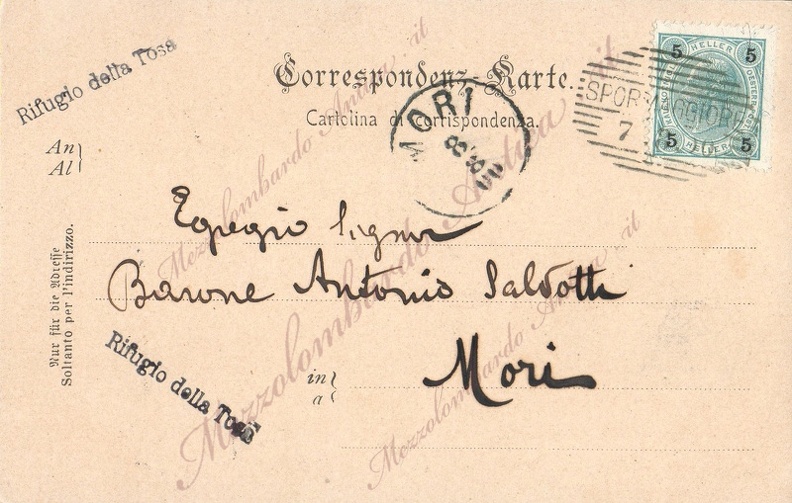 Rifugio della Tosa
Correspondenz-Karte.
Cartolina di corrispondenza.
An
Al
MORI
8 8 00
5 HELLER 5
SPORMAGGIORE
7
5 HELLER 5
Egregio Signor
Barone Antonio Salvotti
in
a
Mori
Nur für die Adresse
Soltanto per l'indirizzo.
Rifugio della Tosa
Mezzolombardo Antica .it
Mezzolombardo Antica .it
Mezzolombardo Antica .it